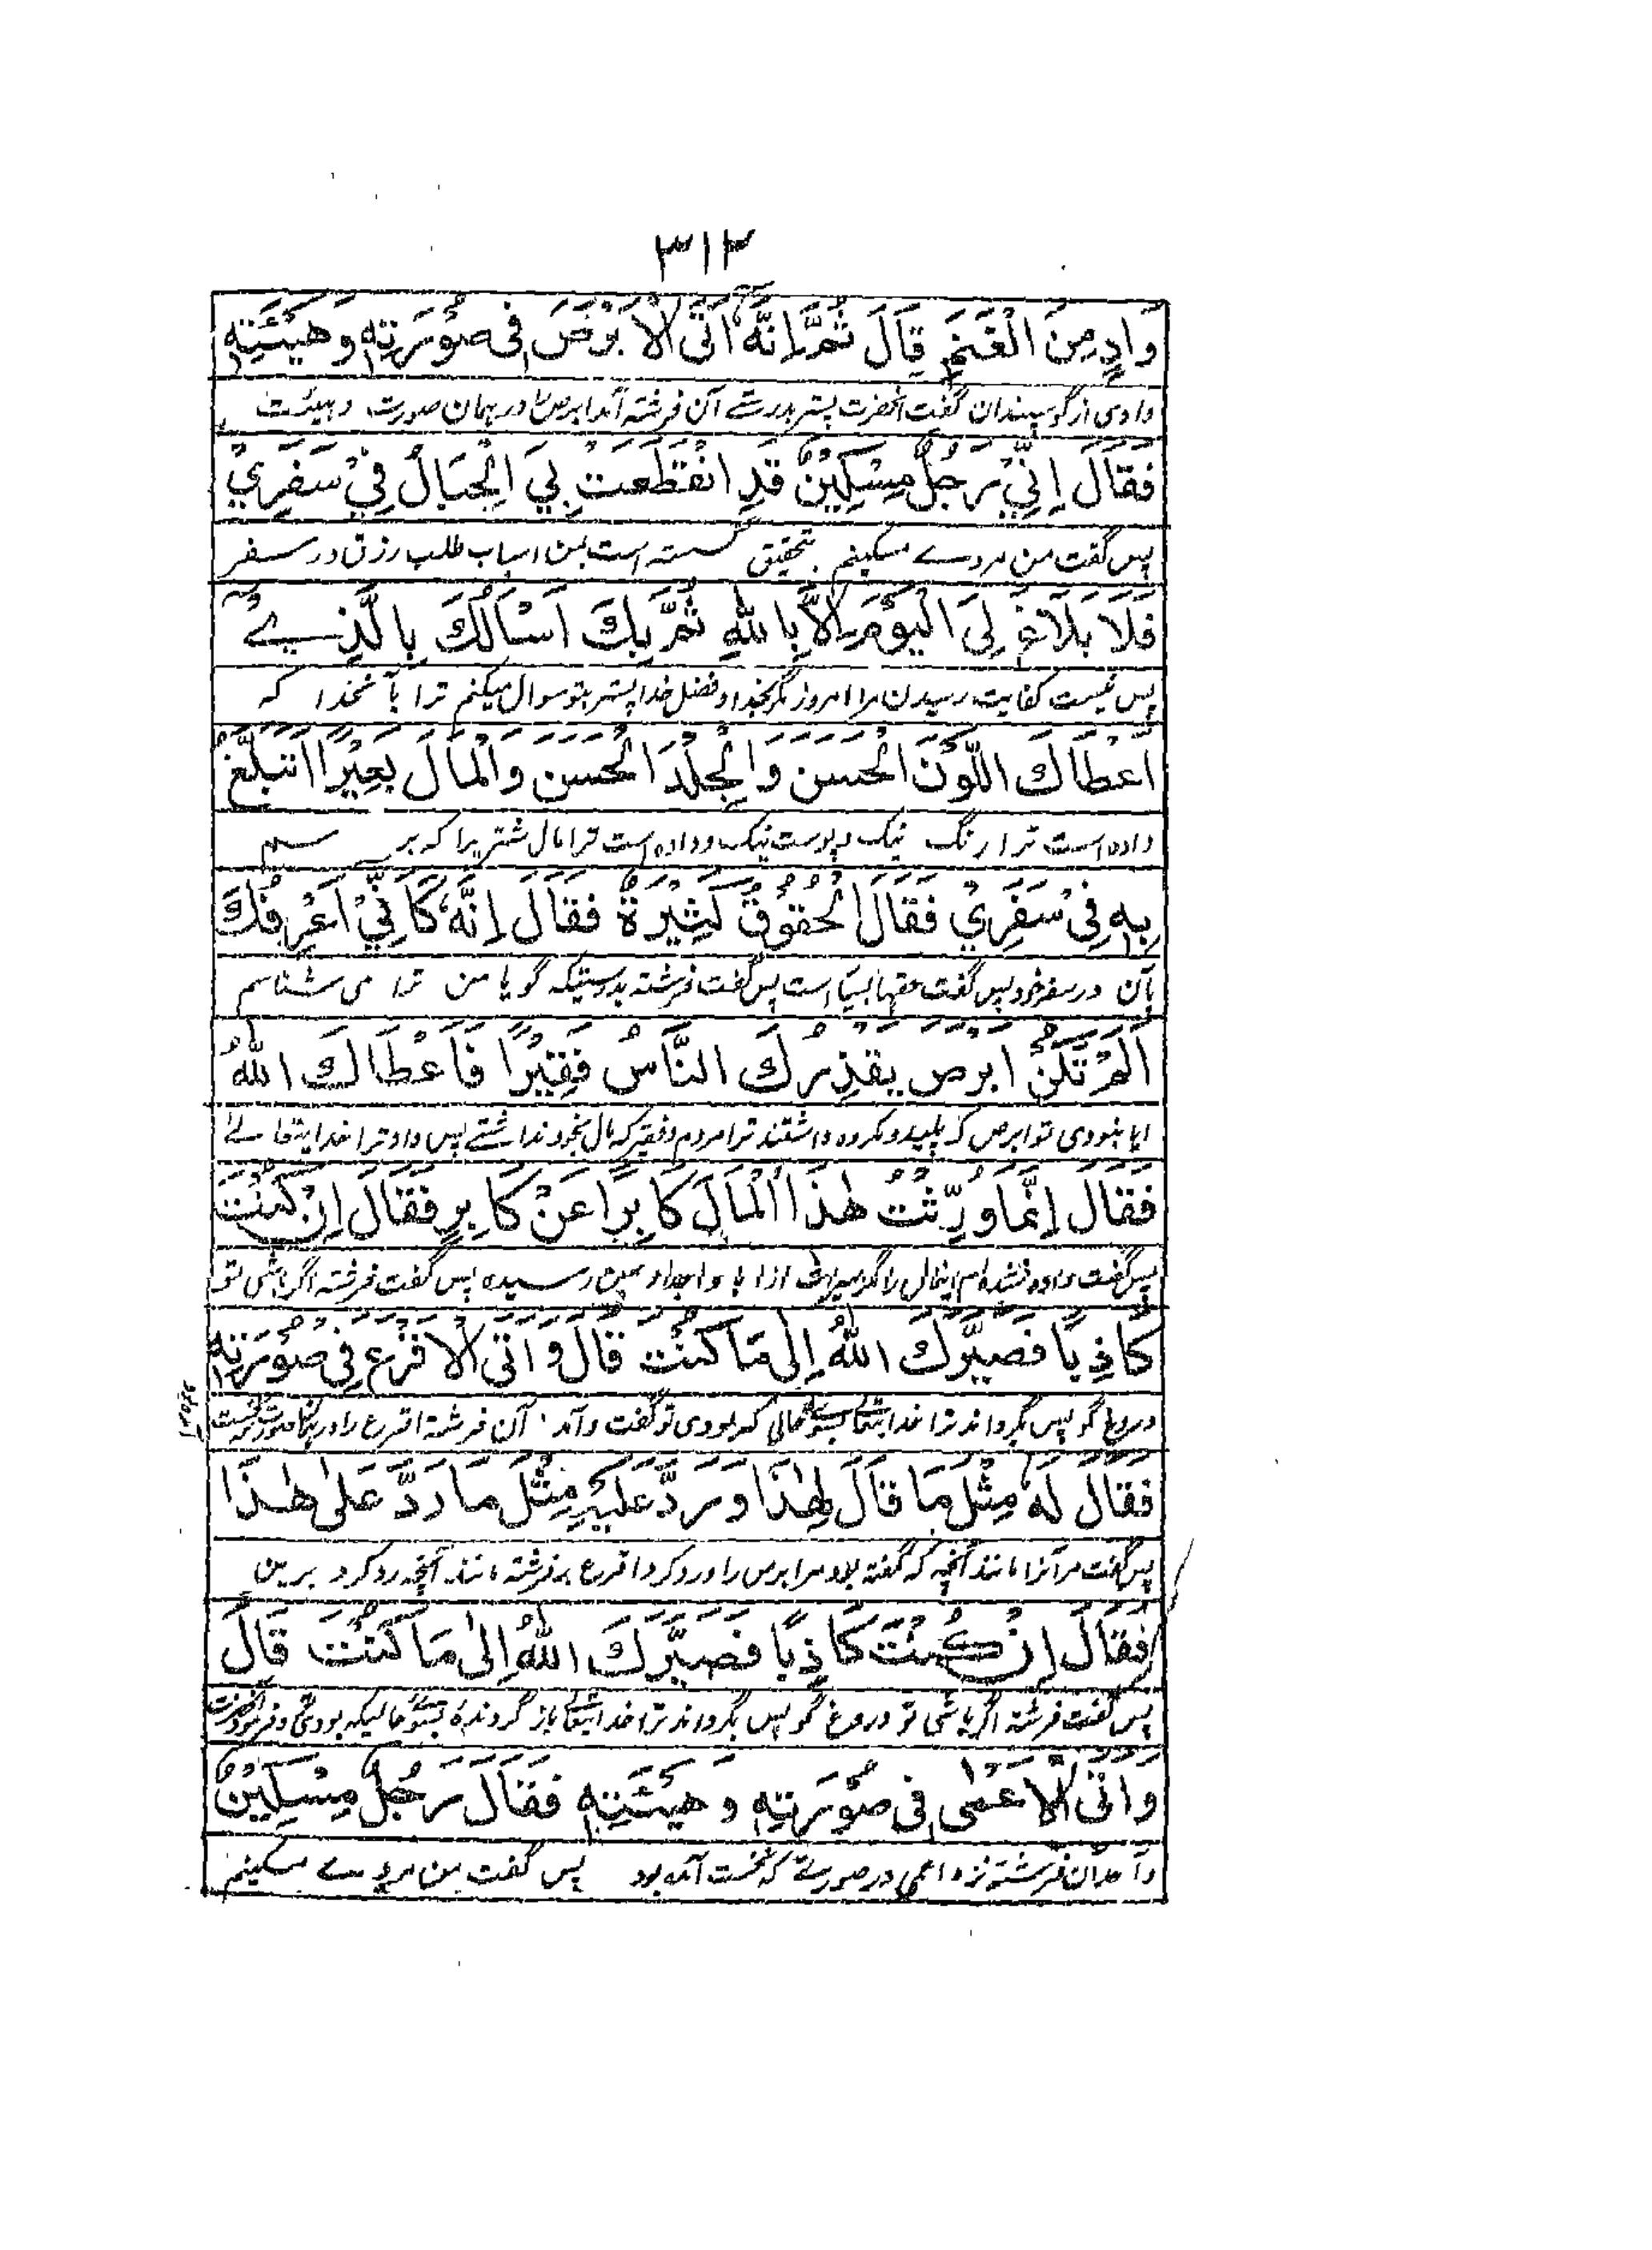 ۳۱۲
وَادٍ مِنَ الْغَنَمِ قَالَ ثُمَّ اِنَّهٗ اَتَی الْاَبْرَصَ فِی صُوْرَتِهٖ وَهَیْئَتِهٖ
وادی از گوسپندان گفت آنحضرت پستر بدرستے آن فرشته آمد ابرص را در همان صورت و هیئت
فَقَالَ اِنِّیْ رَجُلٌ مِسْکِیْنٌ قَدِ انْقَطَعَتْ بِیَ الْحِبَالُ فِیْ سَفَرِیْ
پس گفت من مردے مسکینم بتحقیق گسسته است بمن اسباب طلب رزق در سفر
فَلَا بَلَاغَ لِیَ الْیَوْمَ اِلَّا بِاللهِ ثُمَّ بِكَ اَسْاَلُكَ بِالَّذِیْ
پس نیست کفایت رسیدن مرا امروز مگر بخدا و فضل خدا پستر بتو سوال میکنم ترا بآنخدا که
اَعْطَاكَ اللَّوْنَ الْحَسَنَ وَالْجِلْدَ الْحَسَنَ وَالْمَالَ بَعِیْرًا اَتَبَلَّغُ
داده است ترا رنگ نیک و پوست نیک و داده است ترا مال شتریرا که برسم
بِهٖ فِیْ سَفَرِیْ فَقَالَ الْحُقُوْقُ کَثِیْرَةٌ فَقَالَ اِنَّهٗ کَاَنِّیْ اَعْرِفُكَ
بآن در سفر خود پس گفت حقها بسیار است پس گفت فرشته بدرستیکه گویا من ترا می شناسم
اَلَمْ تَکُنْ اَبْرَصَ یَقْذِرُكَ النَّاسُ فَقِیْرًا فَاَعْطَاكَ اللهُ
ایا نبودی تو ابرص که پلید و مکروه داشتند ترا مردم و فقیر که مال بخود نداشتے پس داد ترا خدایتعالے
فَقَالَ اِنَّمَا وُرِّثْتُ هٰذَا الْمَالَ کَابِرًا عَنْ کَابِرٍ فَقَالَ اِنْ کُنْتَ
پس گفت داده نشده ام اینمال را مگر میراث از ابا و اجداد بمن رسیده پس گفت فرشته اگر باشی تو
کَاذِبًا فَصَیَّرَكَ اللهُ اِلٰی مَا کُنْتَ قَالَ وَاَتَی الْاَقْرَعَ فِیْ صُوْرَتِهٖ
دروغ گو پس بگرداند ترا خدایتعالے بسوے حالی که بودی تو گفت و آمد آن فرشته اقرع را در
فَقَالَ لَهٗ مِثْلَ مَا قَالَ لِهٰذَا وَرَدَّ عَلَیْهِ مِثْلَ مَا رَدَّ عَلٰی هٰذَا
پس گفت مر آنرا مانند آنچه که گفته بود مر ابرص را و رد کرد اقرع بر فرشته مانند آنچه رد کرد برین
فَقَالَ اِنْ کُنْتَ کَاذِبًا فَصَیَّرَكَ اللهُ اِلٰی مَا کُنْتَ قَالَ
پس گفت فرشته اگر باشی تو دروغ گو پس بگرداند ترا خدایتعالے باز گرونده بسوے حالیکه بودی و فرمود
وَاَتَی الْاَعْمٰی فِیْ صُوْرَتِهٖ وَهَیْئَتِهٖ فَقَالَ رَجُلٌ مِسْکِیْنٌ
و آمد آن فرشته نزد اعمی در صورتے که نخست آمده بود پس گفت من مردے مسکینم